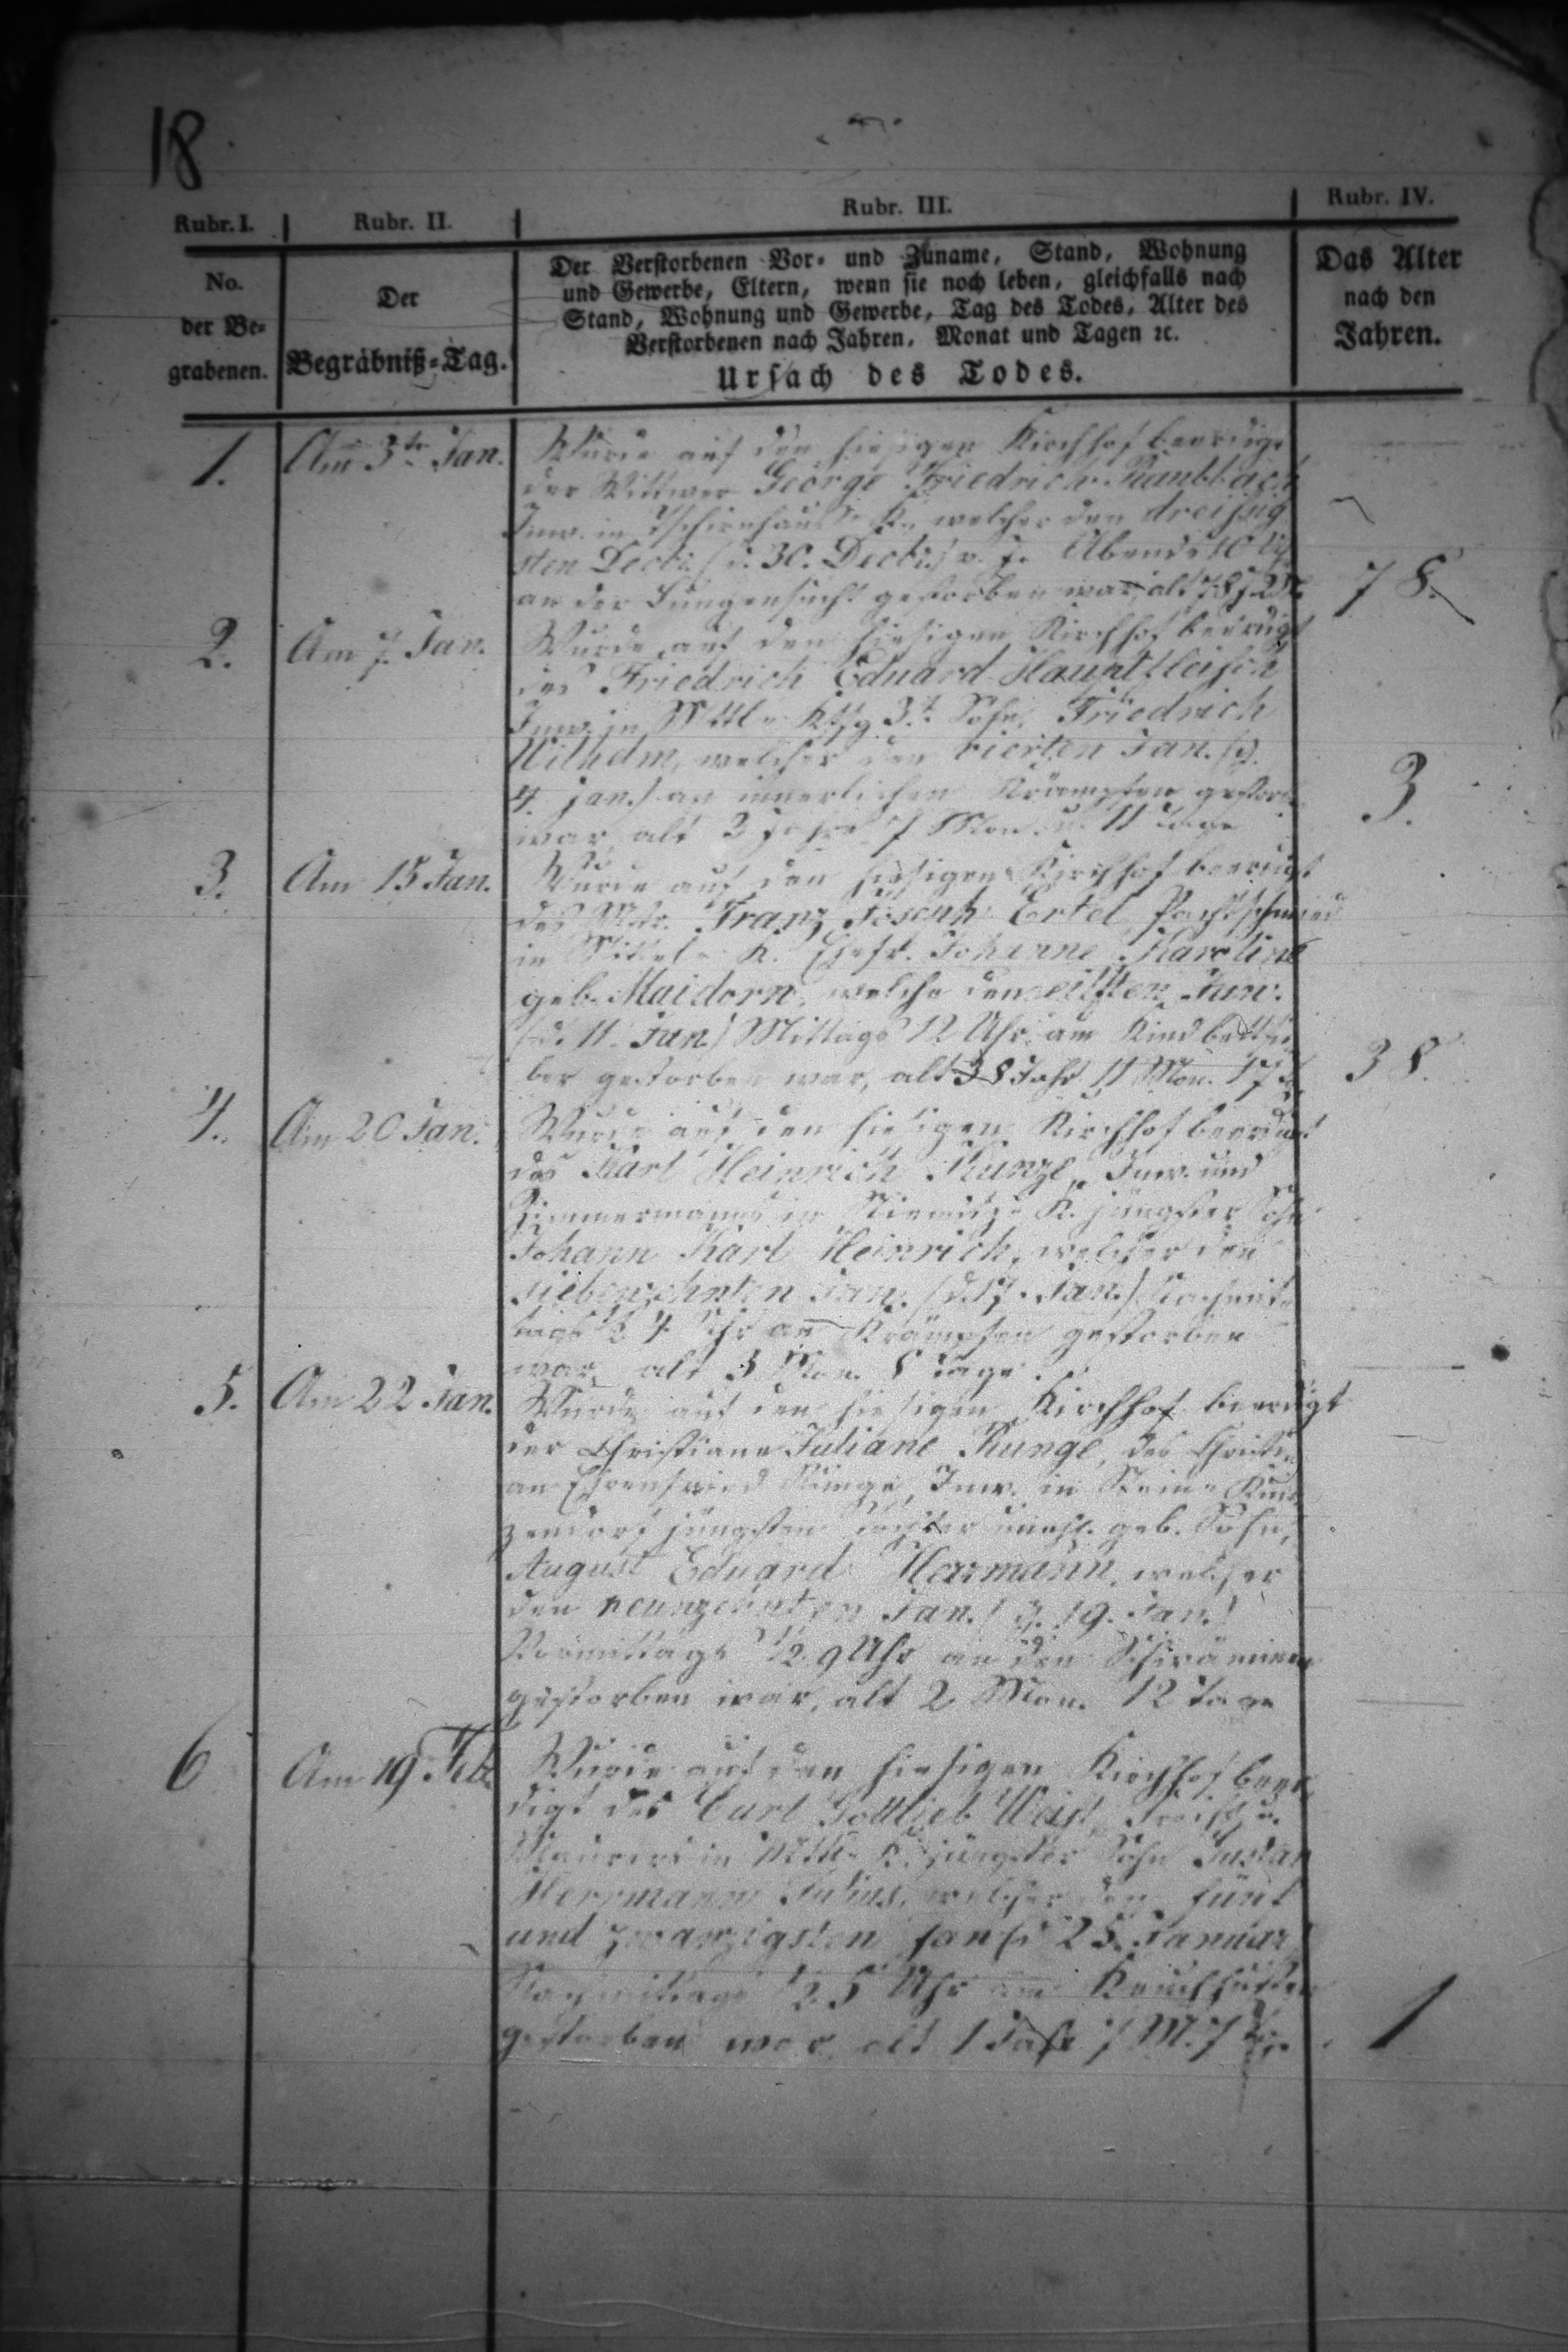 18
Rubr. I. Rubr. II. Rubr. III. Rubr. IV.
No.
der Be=
grabenen.
Der
Begräbniß=Tag.
Der Verstorbenen Vor= und Zuname, Stand, Wohnung
und Gewerbe, Eltern, wenn sie noch leben, gleichfalls nach
Stand, Wohnung und Gewerbe, Tag des Todes, Alter des
Verstorbenen nach Jahren, Monat und Tagen ꝛc.
Ursach des Todes.
Das Alter
nach den
Jahren.
1. Am 3te Jan. Wurde auf den hiesigen Kirchhof beerdigt
der Wittwer George Friedrich
Inw. in welcher den dreißig
sten Decbr. (d. 30. Decbr.) v. J. Abends 10 Uhr
an der Lungensucht gestorben war, alt 78 J. 78.
2. Am 7. Jan. Wurde auf den hiesigen Kirchhof beerdigt
des Friedrich Eduard Hauptfleisch
Inw. in 3t. Sohn, Friedrich
Wilhelm, welcher den vierten Jan. (d.
4. Jan.) an innerlichen Krämpfen gestorben
war, alt 3 Jahre 7 Mon. u. 11 Tage 3.
3. Am 15 Jan. Wurde auf den hiesigen Kirchhof beerdigt
des Mstr. Franz Joseph Ertel, Pachtschmied
in Mittel K. Ehefr. Johanne Karoline
geb. Maidorn, welche den eilften Jan.
(d. 11. Jan.) Mittags 12 Uhr am Kindbettfie
ber gestorben war, alt 38 Jahr 11 Mon. 17 T. 38.
4. Am 20 Jan. Wurde auf den hiesigen Kirchhof beerdigt
des Karl Heinrich Kunze, Inw. und
Zimmermanns in K. jüngster Sohn
Johann Karl Heinrich, welcher den
siebenzehnten Jan. (d. 17. Jan.) Nachmit=
tags ½ 4 Uhr an Krämpfen gestorben
war, alt 3 Mon. 8 Tage.
5. Am 22 Jan. Wurde auf den hiesigen Kirchhof beerdigt
der Christiane Juliane Runge, des Christi=
an Ehrenfried Runge, Inw. in Kun=
zendorf jüngsten Tochter unehl. geb. Sohn,
August Eduard Herrmann, welcher
den neunzehnten Jan. (d. 19. Jan.)
Vormittags ½ 9 Uhr an den
gestorben war, alt 2 Mon. 12 Tage
6 Am 19 Feb. Wurde auf den hiesigen Kirchhof beer
digt des Carl Gottlieb Weist,
Maurers in K. jüngster Sohn Gustav
Herrmann Julius, welcher den fünf
und zwanzigsten Jan (d 25. Januar)
Nachmittags ½ 5 Uhr am Keuchhusten
gestorben war alt 1 Jahr 7 M. 7 Tge 1